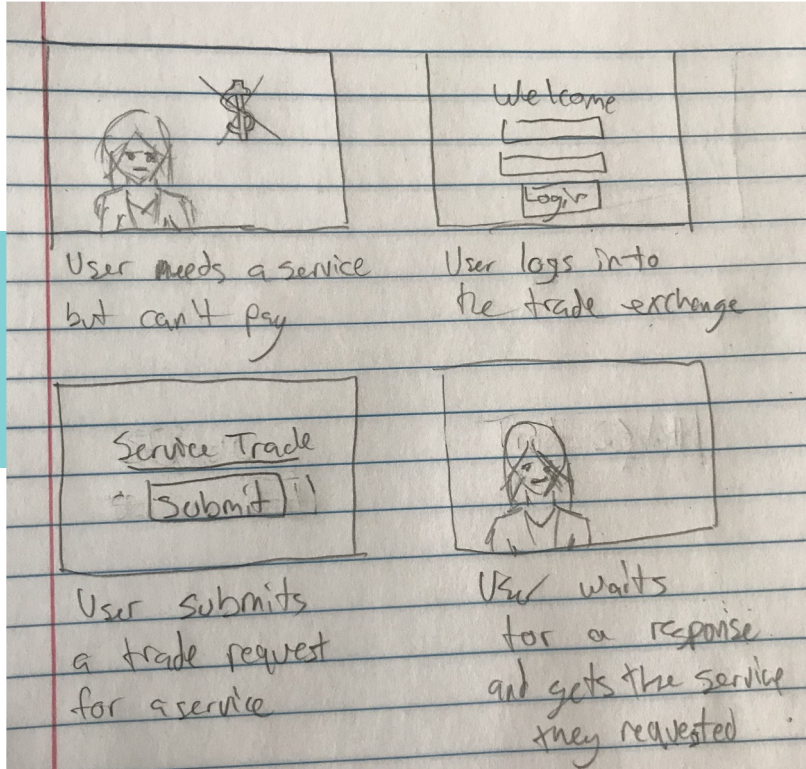 $
Welcome
Login
User needs a service
but can't pay
User logs into
the trade exchange
Service Trade
Submit
User submits
a trade request
for a service
User waits
for a response
and gets the service
they requested